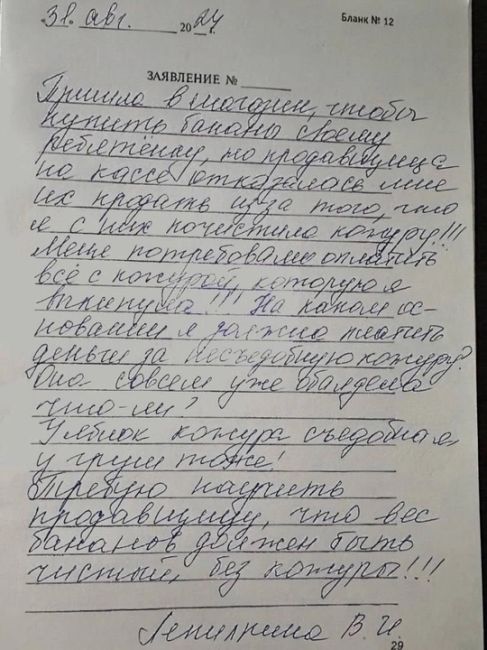 31 авг. 2024 г.
Бланк № 12
ЗАЯВЛЕНИЕ №
Пришла в магазин, чтобы
купить бананы своему
ребятёнку, но продавщица
на кассе отказалась мне
их продать из за того, что
я с них почистила кожуру!!!
Меня потребовали оплатить
всё с кожурой, которую я
выкинула!!! На каком ос-
новании я должна платить
деньги за несъедобную кожуру?
Она совсем уже обалдела
что-ли?
У яблок кожура съедобная,
у груш тоже!
Требую научить
продавщицу, что вес
бананов должен быть
чистый, без кожуры!!!
В. И.
29